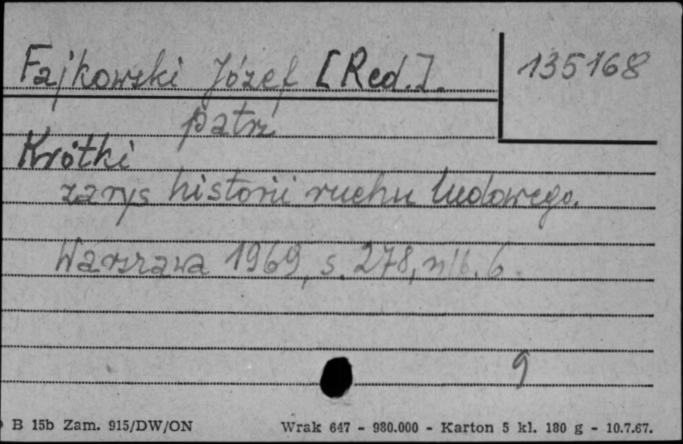 Fajkowski Józef [Red.].
135168
patrz
Krótki
zarys historii ruchu ludowego.
Warszawa 1969, s. 278, nlb. 6.
9
B 15b Zam. 915/DW/ON
Wrak 647 - 980.000 - Karton 5 kl. 180 g - 10.7.67.